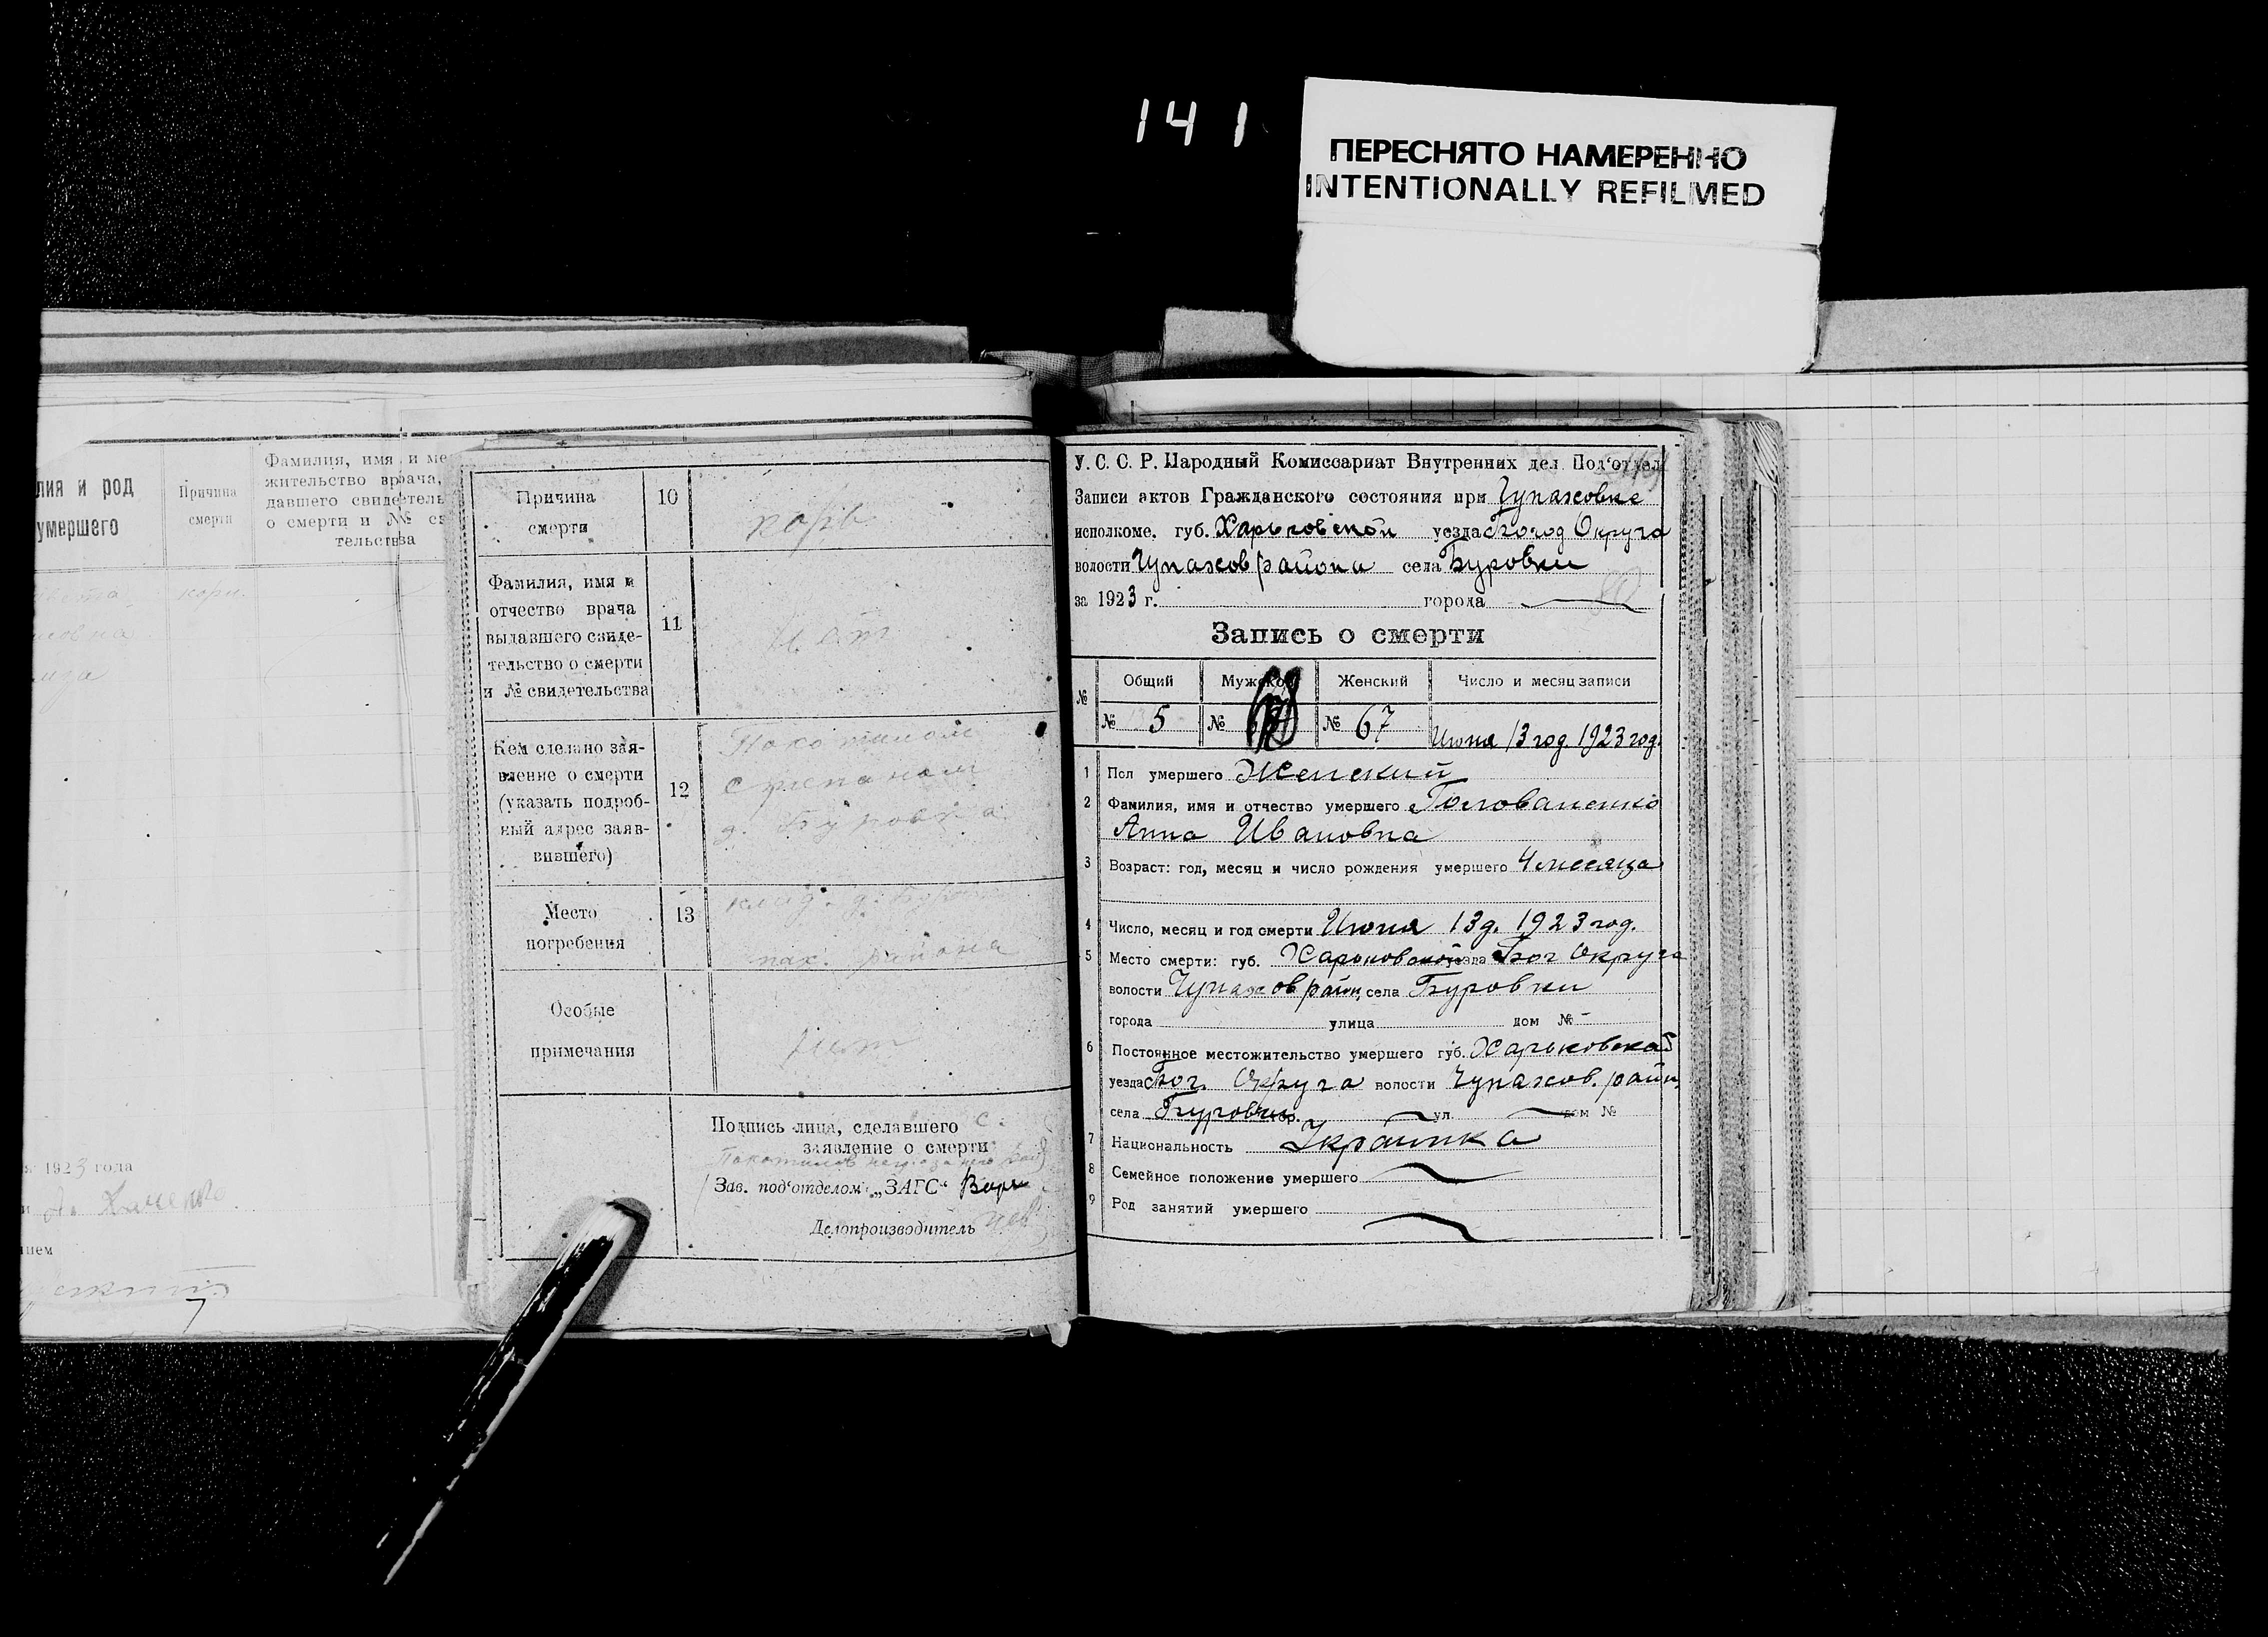 14 1
ПЕРЕСНЯТО НАМЕРЕННО
INTENTIONALLY REFILMED
лия и род
умершего
Причина
смерти
Фамилия, имя и ме
жительство врача,
давшего свидетель
о смерти и №№ св
тельства
кори.
1923 года
нем
Причина
смерти
10
корь
Фамилия, имя и
отчество врача
выдавшего свиде-
тельство о смерти
и № свидетельства
11
Нет
Кем сделано зая-
вление о смерти
(указать подроб-
ный адрес заяв-
вившего)
12
Покотилом
Степаном
д. Буровка
Место
погребения
13
клад. д.
района
Особые
примечания
Нет
Подпись лица, сделавшего
заявление о смерти
Зав. под'отделом „ЗАГС“
Делопроизводитель
У. С. С. Р. Народный Комиссариат Внутренних дел Под'отдел
Записи актов Гражданского состояния при Чупаховке
исполкоме, губ. Харьковской уезда Богод Округа
волости Чупахов района села Буровки
за 1923 г. города
Запись о смерти
№ Общий Мужской Женский Число и месяц записи
№ 5 № № 67 Июня 13 год. 1923 год.
1 Пол умершего Женский
2 Фамилия, имя и отчество умершего Голованенко
Анна Ивановна
3 Возраст: год, месяц и число рождения умершего 4 месяца
4 Число, месяц и год смерти Июня 13 д. 1923 год.
5 Место смерти: губ. Харьковской уезда Бог Округа
волости Чупахов райн, села Буровки
города улица дом №
6 Постоянное местожительство умершего губ. Харьковской
уезда Бог. Округа волости Чупахов. райн.
села Буровки гор. ул. дом №
7 Национальность Украинка
8 Семейное положение умершего
9 Род занятий умершего